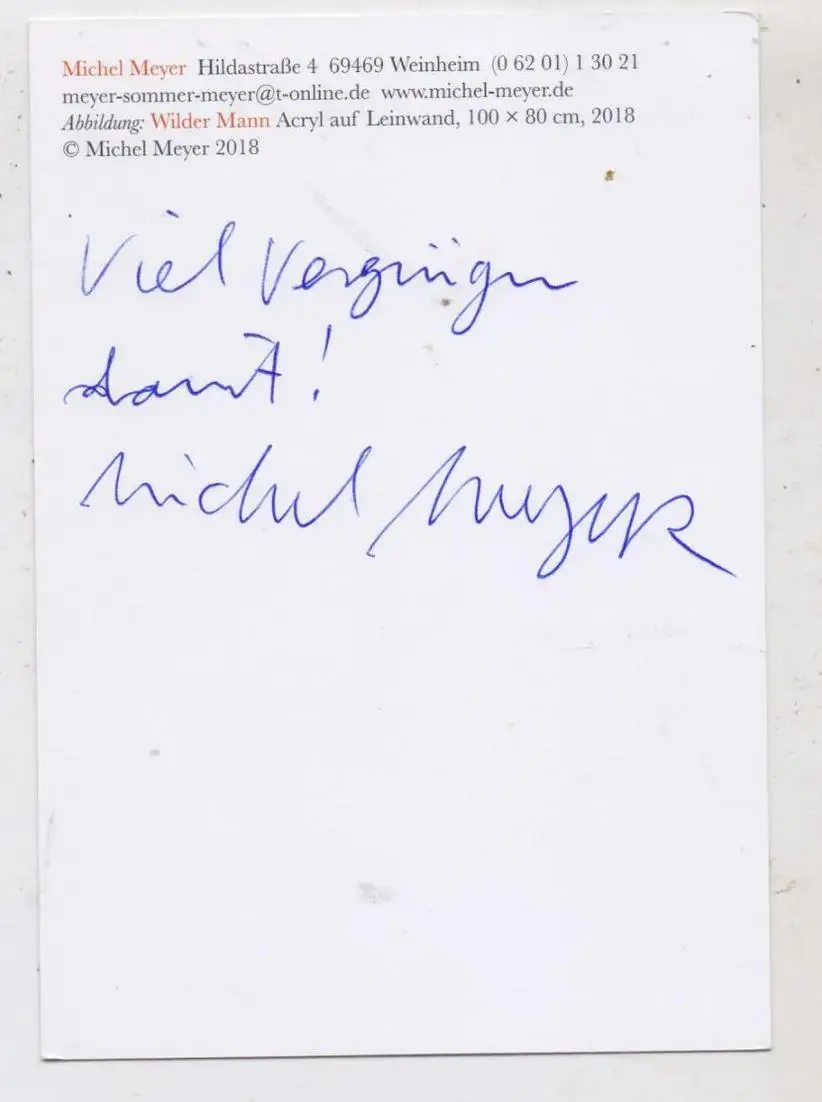 Michel Meyer Hildastraße 4 69469 Weinheim (0 62 01) 1 30 21
meyer-sommer-meyer@t-online.de www.michel-meyer.de
Abbildung: Wilder Mann Acryl auf Leinwand, 100 × 80 cm, 2018
© Michel Meyer 2018
Viel Vergnügen
damit!
Michel Meyer